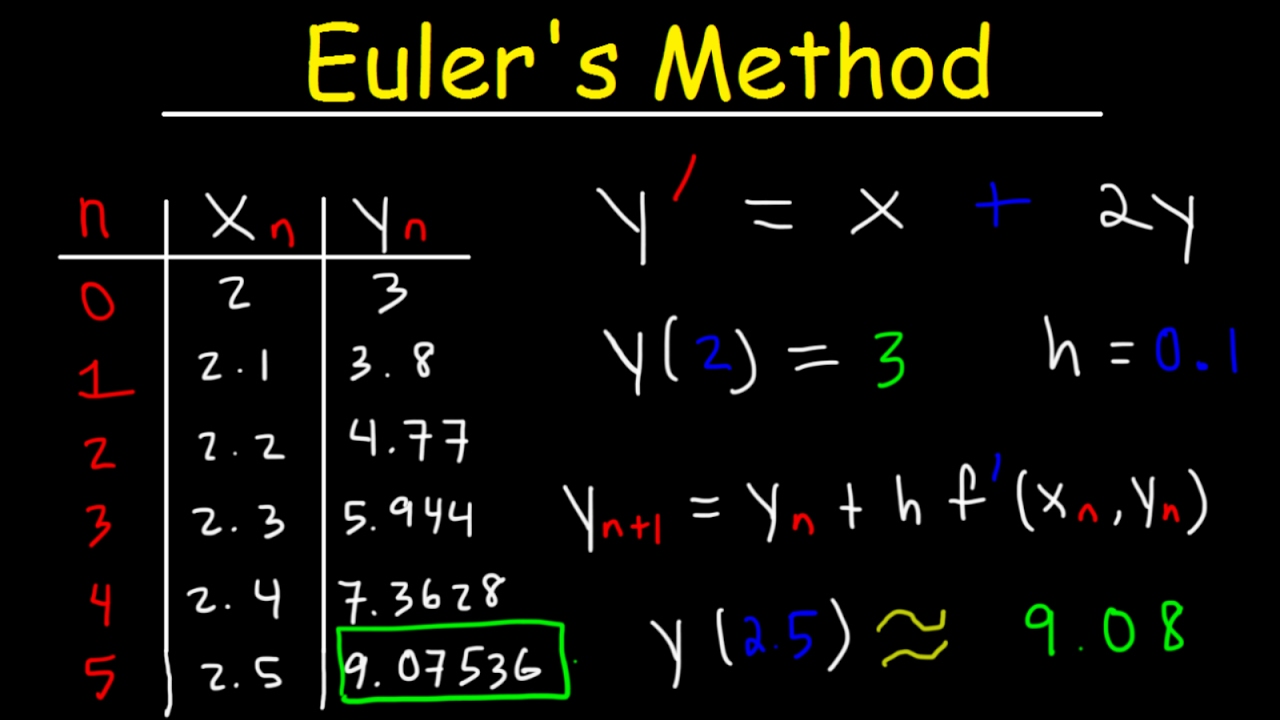 Euler's Method
n Xn Yn
0 2 3
1 2.1 3.8
2 2.2 4.77
3 2.3 5.944
4 2.4 7.3628
5 2.5 9.07536
y' = x + 2y
y(2) = 3 h = 0.1
yn+1 = yn + h f'(xn, yn)
y(2.5) ≈ 9.08